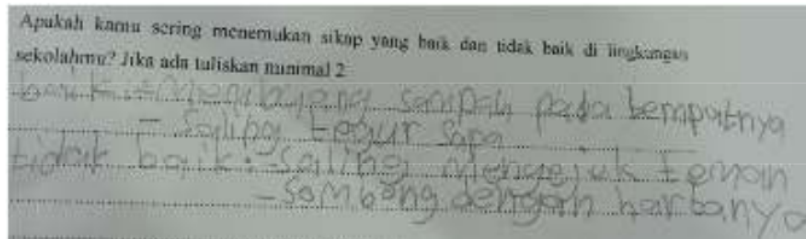 Apakah kamu sering menemukan sikap yang baik dan tidak baik di lingkungan
sekolahmu? Jika ada tuliskan minimal 2
baik : - Membuang sampah pada tempatnya
- Saling tegur sapa
tidak baik : - Saling mengejek teman
- Sombong dengan hartanya